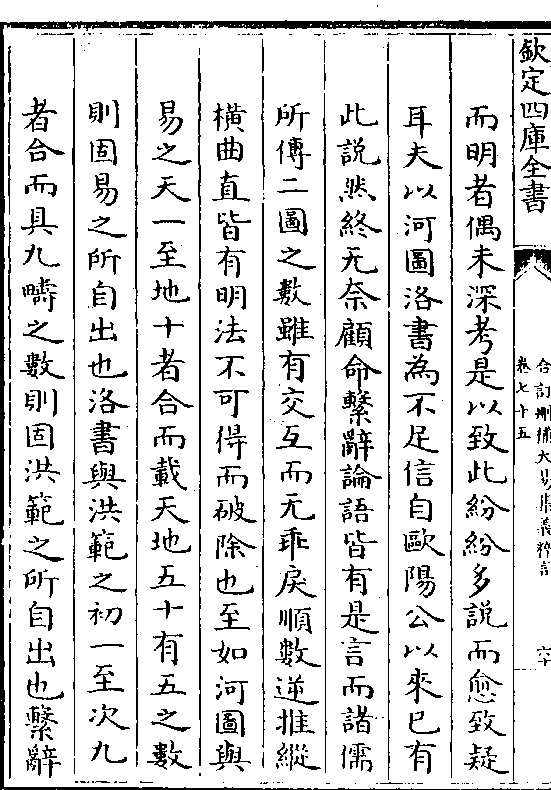 欽定四庫全書
合訂刪補大易集義粹言
卷七十五
六十
而明者偶未深考是以致此紛紛多説而愈致疑
耳夫以河圖洛書為不足信自歐陽公以來已有
此説然終无奈顧命繫辭論語皆有是言而諸儒
所傳二圖之數雖有交互而无乖戾順數逆推縱
横曲直皆有明法不可得而破除也至如河圖與
易之天一至地十者合而載天地五十有五之數
則固易之所自出也洛書與洪範之初一至次九
者合而具九疇之數則固洪範之所自出也繫辭